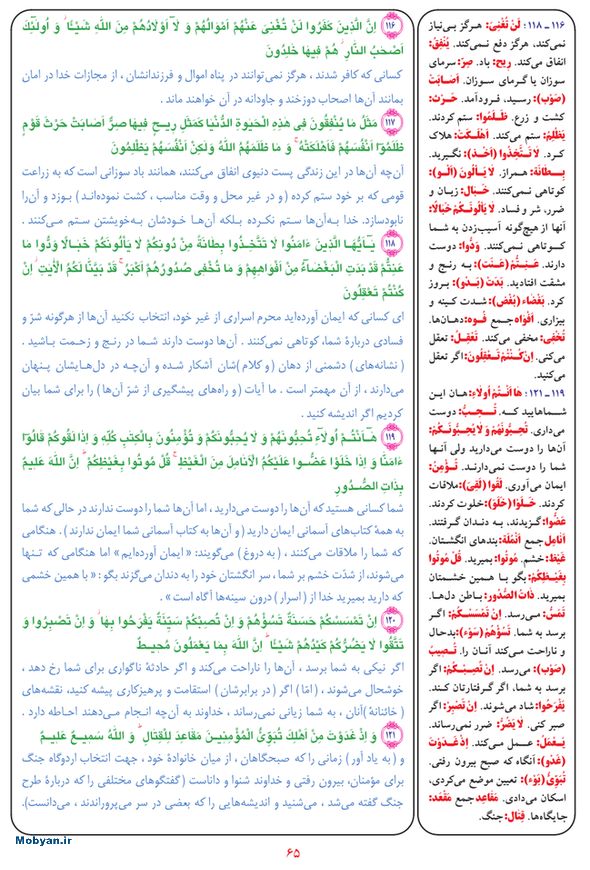 ۱۱۶ إِنَّ الَّذِينَ كَفَرُوا لَنْ تُغْنِيَ عَنْهُمْ أَمْوَالُهُمْ وَ لَآ أَوْلَادُهُمْ مِنَ اللَّهِ شَيْئًا ۖ وَ أُولَٰئِكَ
أَصْحَٰبُ النَّارِ ۚ هُمْ فِيهَا خَٰلِدُونَ
کسانی که کافر شدند ، هرگز نمی‌توانند در پناه اموال و فرزندانشان ، از مجازات خدا در امان
بمانند آن‌ها اصحاب دوزخند و جاودانه در آن خواهند ماند .
۱۱۷ مَثَلُ مَا يُنْفِقُونَ فِي هَٰذِهِ الْحَيَوٰةِ الدُّنْيَا كَمَثَلِ رِيحٍ فِيهَا صِرٌّ أَصَابَتْ حَرْثَ قَوْمٍ
ظَلَمُوٓا أَنْفُسَهُمْ فَأَهْلَكَتْهُ ۚ وَ مَا ظَلَمَهُمُ اللَّهُ وَلَٰكِنْ أَنْفُسَهُمْ يَظْلِمُونَ
آن‌چه آن‌ها در این زندگی پست دنیوی انفاق می‌کنند، همانند باد سوزانی است که به زراعت
قومی که بر خود ستم کرده (و در غیر محل و وقت مناسب ، کشت نموده‌اند) بوزد و آن‌را
نابودسازد. خدا به‌آن‌ها ستم نکرده بلکه آن‌ها خودشان به‌خویشتن ستم می‌کنند .
۱۱۸ يَٰٓأَيُّهَا الَّذِينَ ءَامَنُوا لَا تَتَّخِذُوا بِطَانَةً مِنْ دُونِكُمْ لَا يَأْلُونَكُمْ خَبَالًا وَدُّوا مَا
عَنِتُّمْ قَدْ بَدَتِ الْبَغْضَآءُ مِنْ أَفْوَاهِهِمْ وَ مَا تُخْفِي صُدُورُهُمْ أَكْبَرُ ۚ قَدْ بَيَّنَّا لَكُمُ الْأَيَٰتِ ۖ إِنْ
كُنْتُمْ تَعْقِلُونَ
ای کسانی که ایمان آورده‌اید محرم اسراری از غیر خود، انتخاب نکنید آن‌ها از هرگونه شرّ و
فسادی دربارهٔ شما، کوتاهی نمی‌کنند . آن‌ها دوست دارند شما در رنج و زحمت باشید .
(نشانه‌های) دشمنی از دهان (و کلام)شان آشکار شده و آن‌چه در دل‌هایشان پنهان
می‌دارند ، از آن مهمتر است . ما آیات (و راه‌های پیشگیری از شرّ آن‌ها) را برای شما بیان
کردیم اگر اندیشه کنید .
۱۱۹ هَٰٓأَنْتُمْ أُولَآءِ تُحِبُّونَهُمْ وَ لَا يُحِبُّونَكُمْ وَ تُؤْمِنُونَ بِالْكِتَٰبِ كُلِّهِ وَ إِذَا لَقُوكُمْ قَالُوٓا
ءَامَنَّا وَ إِذَا خَلَوْا عَضُّوا عَلَيْكُمُ الْأَنَامِلَ مِنَ الْغَيْظِ ۚ قُلْ مُوتُوا بِغَيْظِكُمْ ۗ إِنَّ اللَّهَ عَلِيمٌ
بِذَاتِ الصُّدُورِ
شما کسانی هستید که آن‌ها را دوست می‌دارید ، اما آن‌ها شما را دوست ندارند در حالی که شما
به همهٔ کتاب‌های آسمانی ایمان دارید (و آن‌ها به کتاب آسمانی شما ایمان ندارند) . هنگامی
که شما را ملاقات می‌کنند ، (به دروغ) می‌گویند: « ایمان آورده‌ایم » اما هنگامی که تنها
می‌شوند، از شدّت خشم بر شما ، سر انگشتان خود را به دندان می‌گزند بگو : « با همین خشمی
که دارید بمیرید خدا از ( اسرار ) درون سینه‌ها آگاه است » .
۱۲۰ إِنْ تَمْسَسْكُمْ حَسَنَةٌ تَسُؤْهُمْ وَ إِنْ تُصِبْكُمْ سَيِّئَةٌ يَفْرَحُوا بِهَا ۖ وَ إِنْ تَصْبِرُوا وَ
تَتَّقُوا لَا يَضُرُّكُمْ كَيْدُهُمْ شَيْئًا ۗ إِنَّ اللَّهَ بِمَا يَعْمَلُونَ مُحِيطٌ
اگر نیکی به شما برسد ، آن‌ها را ناراحت می‌کند و اگر حادثهٔ ناگواری برای شما رخ دهد ،
خوشحال می‌شوند ، (امّا ) اگر (در برابرشان ) استقامت و پرهیزکاری پیشه کنید، نقشه‌های
(خائنانهٔ )آنان ، به شما زیانی نمی‌رساند ، خداوند به آن‌چه انجام می‌دهند احاطه دارد .
۱۲۱ وَ إِذْ غَدَوْتَ مِنْ أَهْلِكَ تُبَوِّئُ الْمُؤْمِنِينَ مَقَاعِدَ لِلْقِتَالِ ۗ وَ اللَّهُ سَمِيعٌ عَلِيمٌ
و ( به یاد آور ) زمانی را که صبحگاهان ، از میان خانوادهٔ خود ، جهت انتخاب اردوگاه جنگ
برای مؤمنان، بیرون رفتی و خداوند شنوا و داناست ( گفتگوهای مختلفی را که دربارهٔ طرح
جنگ گفته می‌شد ، می‌شنید و اندیشه‌هایی را که بعضی در سر می‌پروراندند ، می‌دانست).
۱۱۶ ـ ۱۱۸ : لَنْ تُغْنِيَ: هرگز بی‌نیاز
نمی‌کند، هرگز دفع نمی‌کند. يُنْفِقُ:
انفاق می‌کند. رِيح: باد. صِرّ: سرمای
سوزان یا گرمای سوزان. أَصَابَتْ
(صَوَبَ): رسید، فرودآمد. حَرْث:
کشت و زرع. ظَلَمُوا: ستم کردند.
يَظْلِمُ: ستم می‌کند. أَهْلَكَتْ: هلاک
کرد. لَا تَتَّخِذُوا (أَخَذَ): نگیرید.
بِطَانَة: همراز. لَا يَأْلُونَ (أَلَوَ):
کوتاهی نمی‌کنند. خَبَال: زیان و
ضرر، شر و فساد. لَا يَأْلُونَكُمْ خَبَالًا:
آنها از هیچ‌گونه آسیب‌زدن به شما
کوتاهی نمی‌کنند. وَدُّوا: دوست
دارند. عَنِتُّمْ (عَنَتَ): به رنج و
مشقت افتادید. بَدَتْ (بَدَوَ): بروز
کرد. بَغْضَاء (بُغْض): شدت کینه و
بیزاری. أَفْوَاه جمع فُوه: دهان‌ها.
تُخْفِي: مخفی می‌کند. تَعْقِلُ: تعقل
می‌کنی. إِنْ كُنْتُمْ تَعْقِلُونَ: اگر تعقل
می‌کنید.
۱۱۹ ـ ۱۲۱ : هَا أَنْتُمْ أُولَاءِ: هان این
شماهایید که. تُحِبُّ: دوست
می‌داری. تُحِبُّونَهُمْ وَ لَا يُحِبُّونَكُمْ:
آن‌ها را دوست می‌دارید ولی آنها
شما را دوست نمی‌دارند. تُؤْمِنُ:
ایمان می‌آوری. لَقُوا (لَقِيَ): ملاقات
کردند. خَلَوْا (خَلَوَ): خلوت کردند.
عَضُّوا: گزیدند، به دندان گرفتند.
أَنَامِل جمع أَنْمُلَة: بندهای انگشتان.
غَيْظ: خشم. مُوتُوا: بمیرید. قُلْ مُوتُوا
بِغَيْظِكُمْ: بگو با همین خشمتان
بمیرید. ذَات الصُّدُور: باطن دل‌ها.
تَمَسُّ: می‌رسد. إِنْ تَمْسَسْكُمْ: اگر
برسد به شما. تَسُؤْهُمْ (سَوَءَ): بدحال
و ناراحت می‌کند آنان را. تُصِيبُ
(صَوَبَ): می‌رسد. إِنْ تُصِبْكُمْ: اگر
برسد به شما، اگر گرفتارتان کند.
يَفْرَحُوا: شاد می‌شوند. إِنْ تَصْبِرْ: اگر
صبر کنی. لَا يَضُرُّ: ضرر نمی‌رساند.
يَعْمَلُ: عمل می‌کند. إِذْ غَدَوْتَ
(غَدَوَ): آنگاه که صبح بیرون رفتی.
تُبَوِّئُ (بَوَءَ): تعیین موضع می‌کردی،
اسکان می‌دادی. مَقَاعِد جمع مَقْعَد:
جایگاه‌ها. قِتَال: جنگ.
Mobyan.ir
۶۵